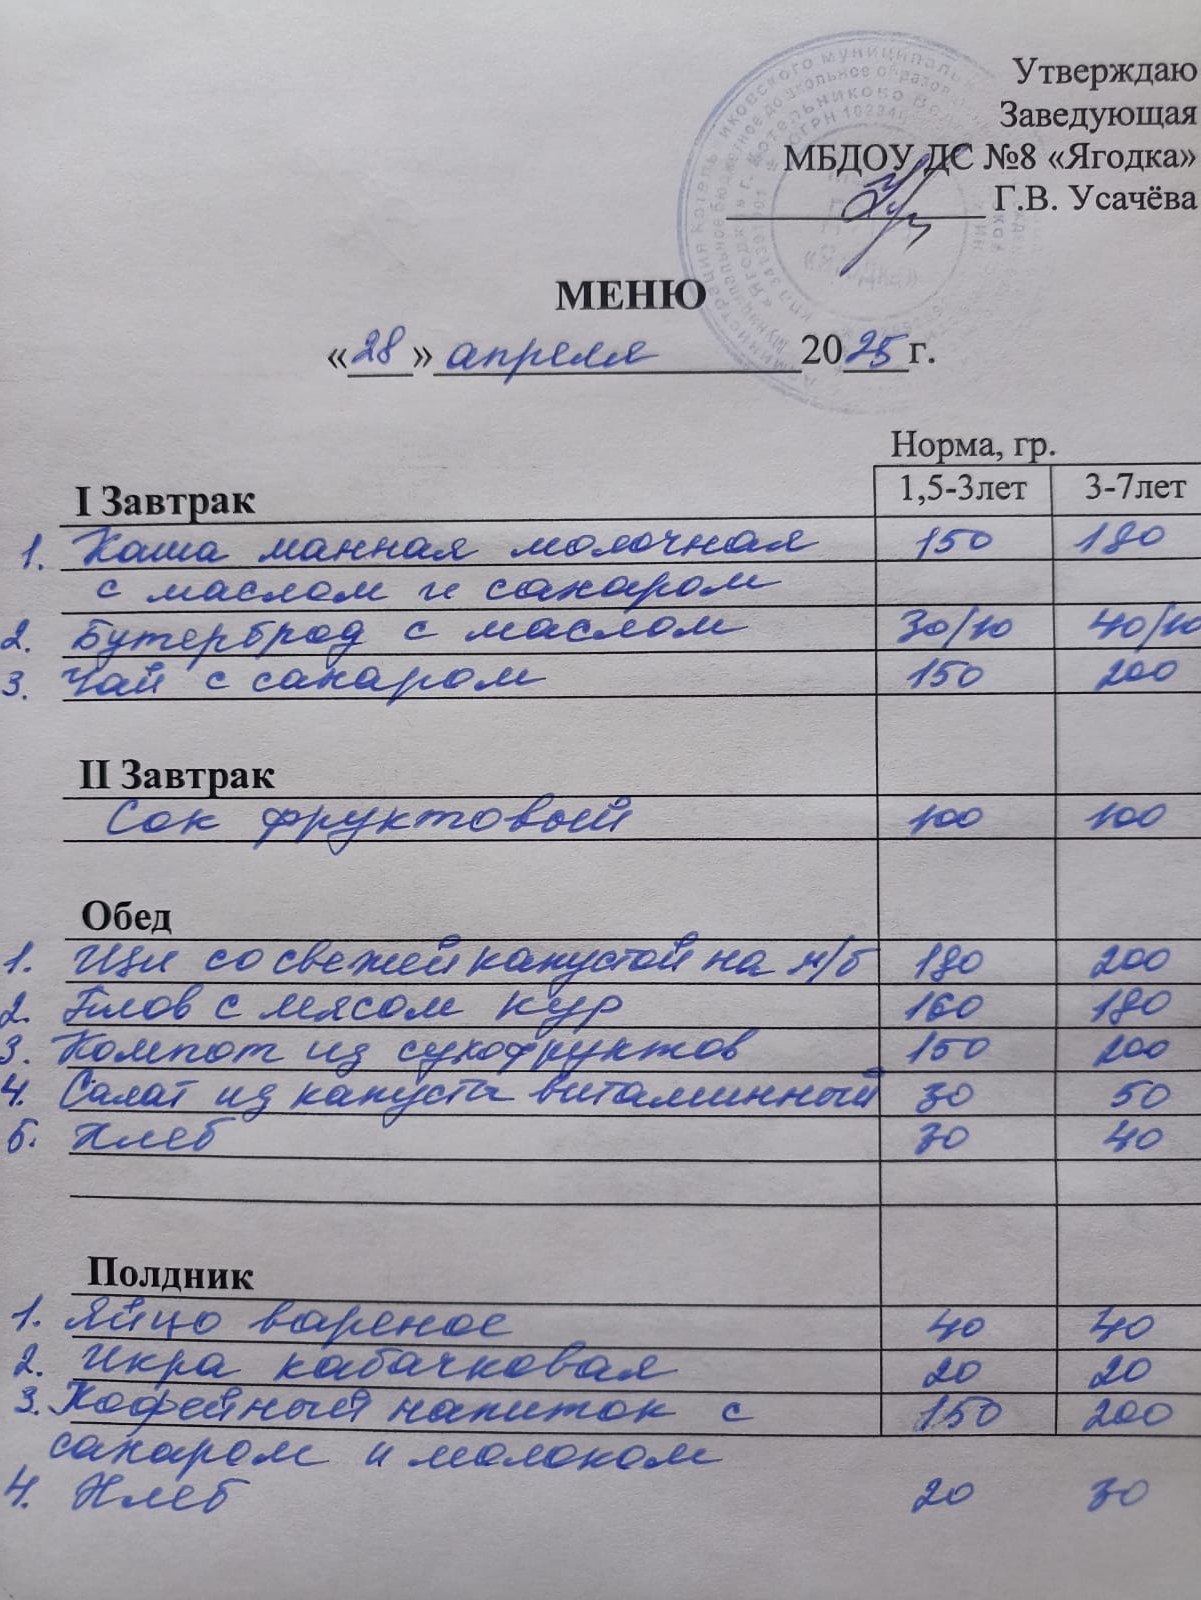 Утверждаю
Заведующая
МБДОУ ДС №8 «Ягодка»
Г.В. Усачёва
МЕНЮ
«28» апреля 2025 г.
Норма, гр.
I Завтрак 1,5-3лет 3-7лет
1. Каша манная молочная 150 180
с маслом и сахаром
2. Бутерброд с маслом 30/10 40/10
3. Чай с сахаром 150 200
II Завтрак
Сок фруктовый 100 100
Обед
1. Щи со свежей капустой на м/б 180 200
2. Плов с мясом кур 160 180
3. Компот из сухофруктов 150 200
4. Салат из капусты витаминный 30 50
5. Хлеб 30 40
Полдник
1. Яйцо вареное 40 40
2. Икра кабачковая 20 20
3. Кофейный напиток с 150 200
сахаром и молоком
4. Хлеб 20 30